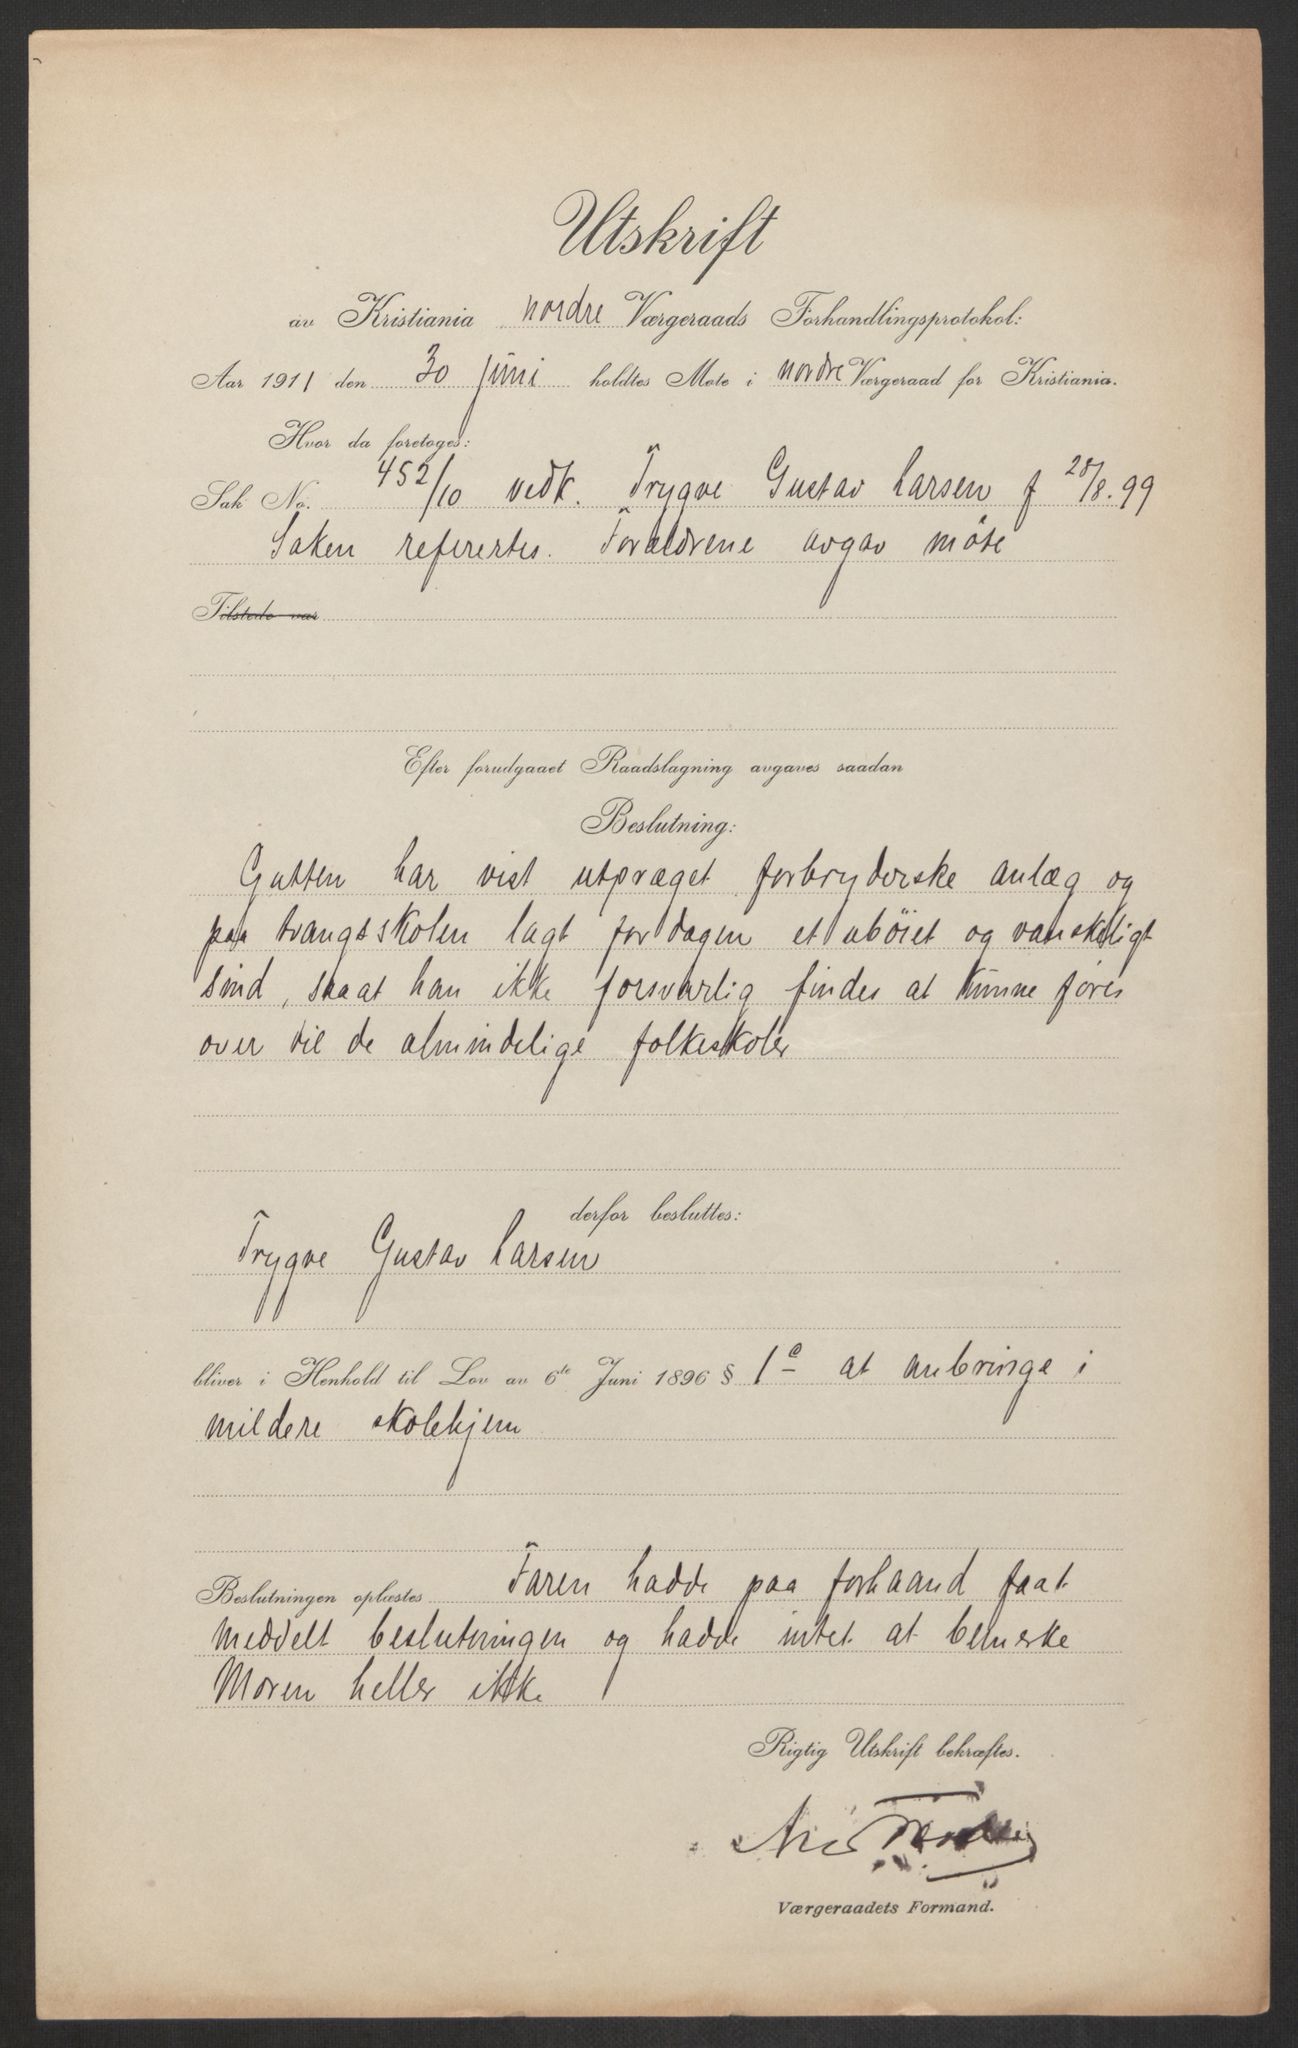 Utskrift
av Kristiania nordre Værgeraads Forhandlingsprotokol:
Aar 1911 den 30 juni holdtes Møte i nordre Værgeraad for Kristiania.
Hvor da foretoges:
Sak No. 452/10 vedk. Trygve Gustav Larsen f 28/8.99
Saken refertes. Forældrene avgav møte
Tilstede var
Efter forudgaaet Raadslagning avgaves saadan
Beslutning:
Gutten har vist utpræget forbryderske anlæg og
paa tvangsskolen lagt for dagen et ubøiet og vanskeligt
sind, saa at han ikke forsvarlig findes at kunne føres
over til de almindelige folkeskoler
derfor besluttes:
Trygve Gustav Larsen
bliver i Henhold til Lov av 6te Juni 1896 § 1 a at anbringe i
mildere skolehjem
Beslutningen oplæstes Faren hadde paa forhaand faat
meddelt beslutningen og hadde intet at bemerke
Moren heller ikke
Rigtig Utskrift bekræftes.
Værgeraadets Formand.